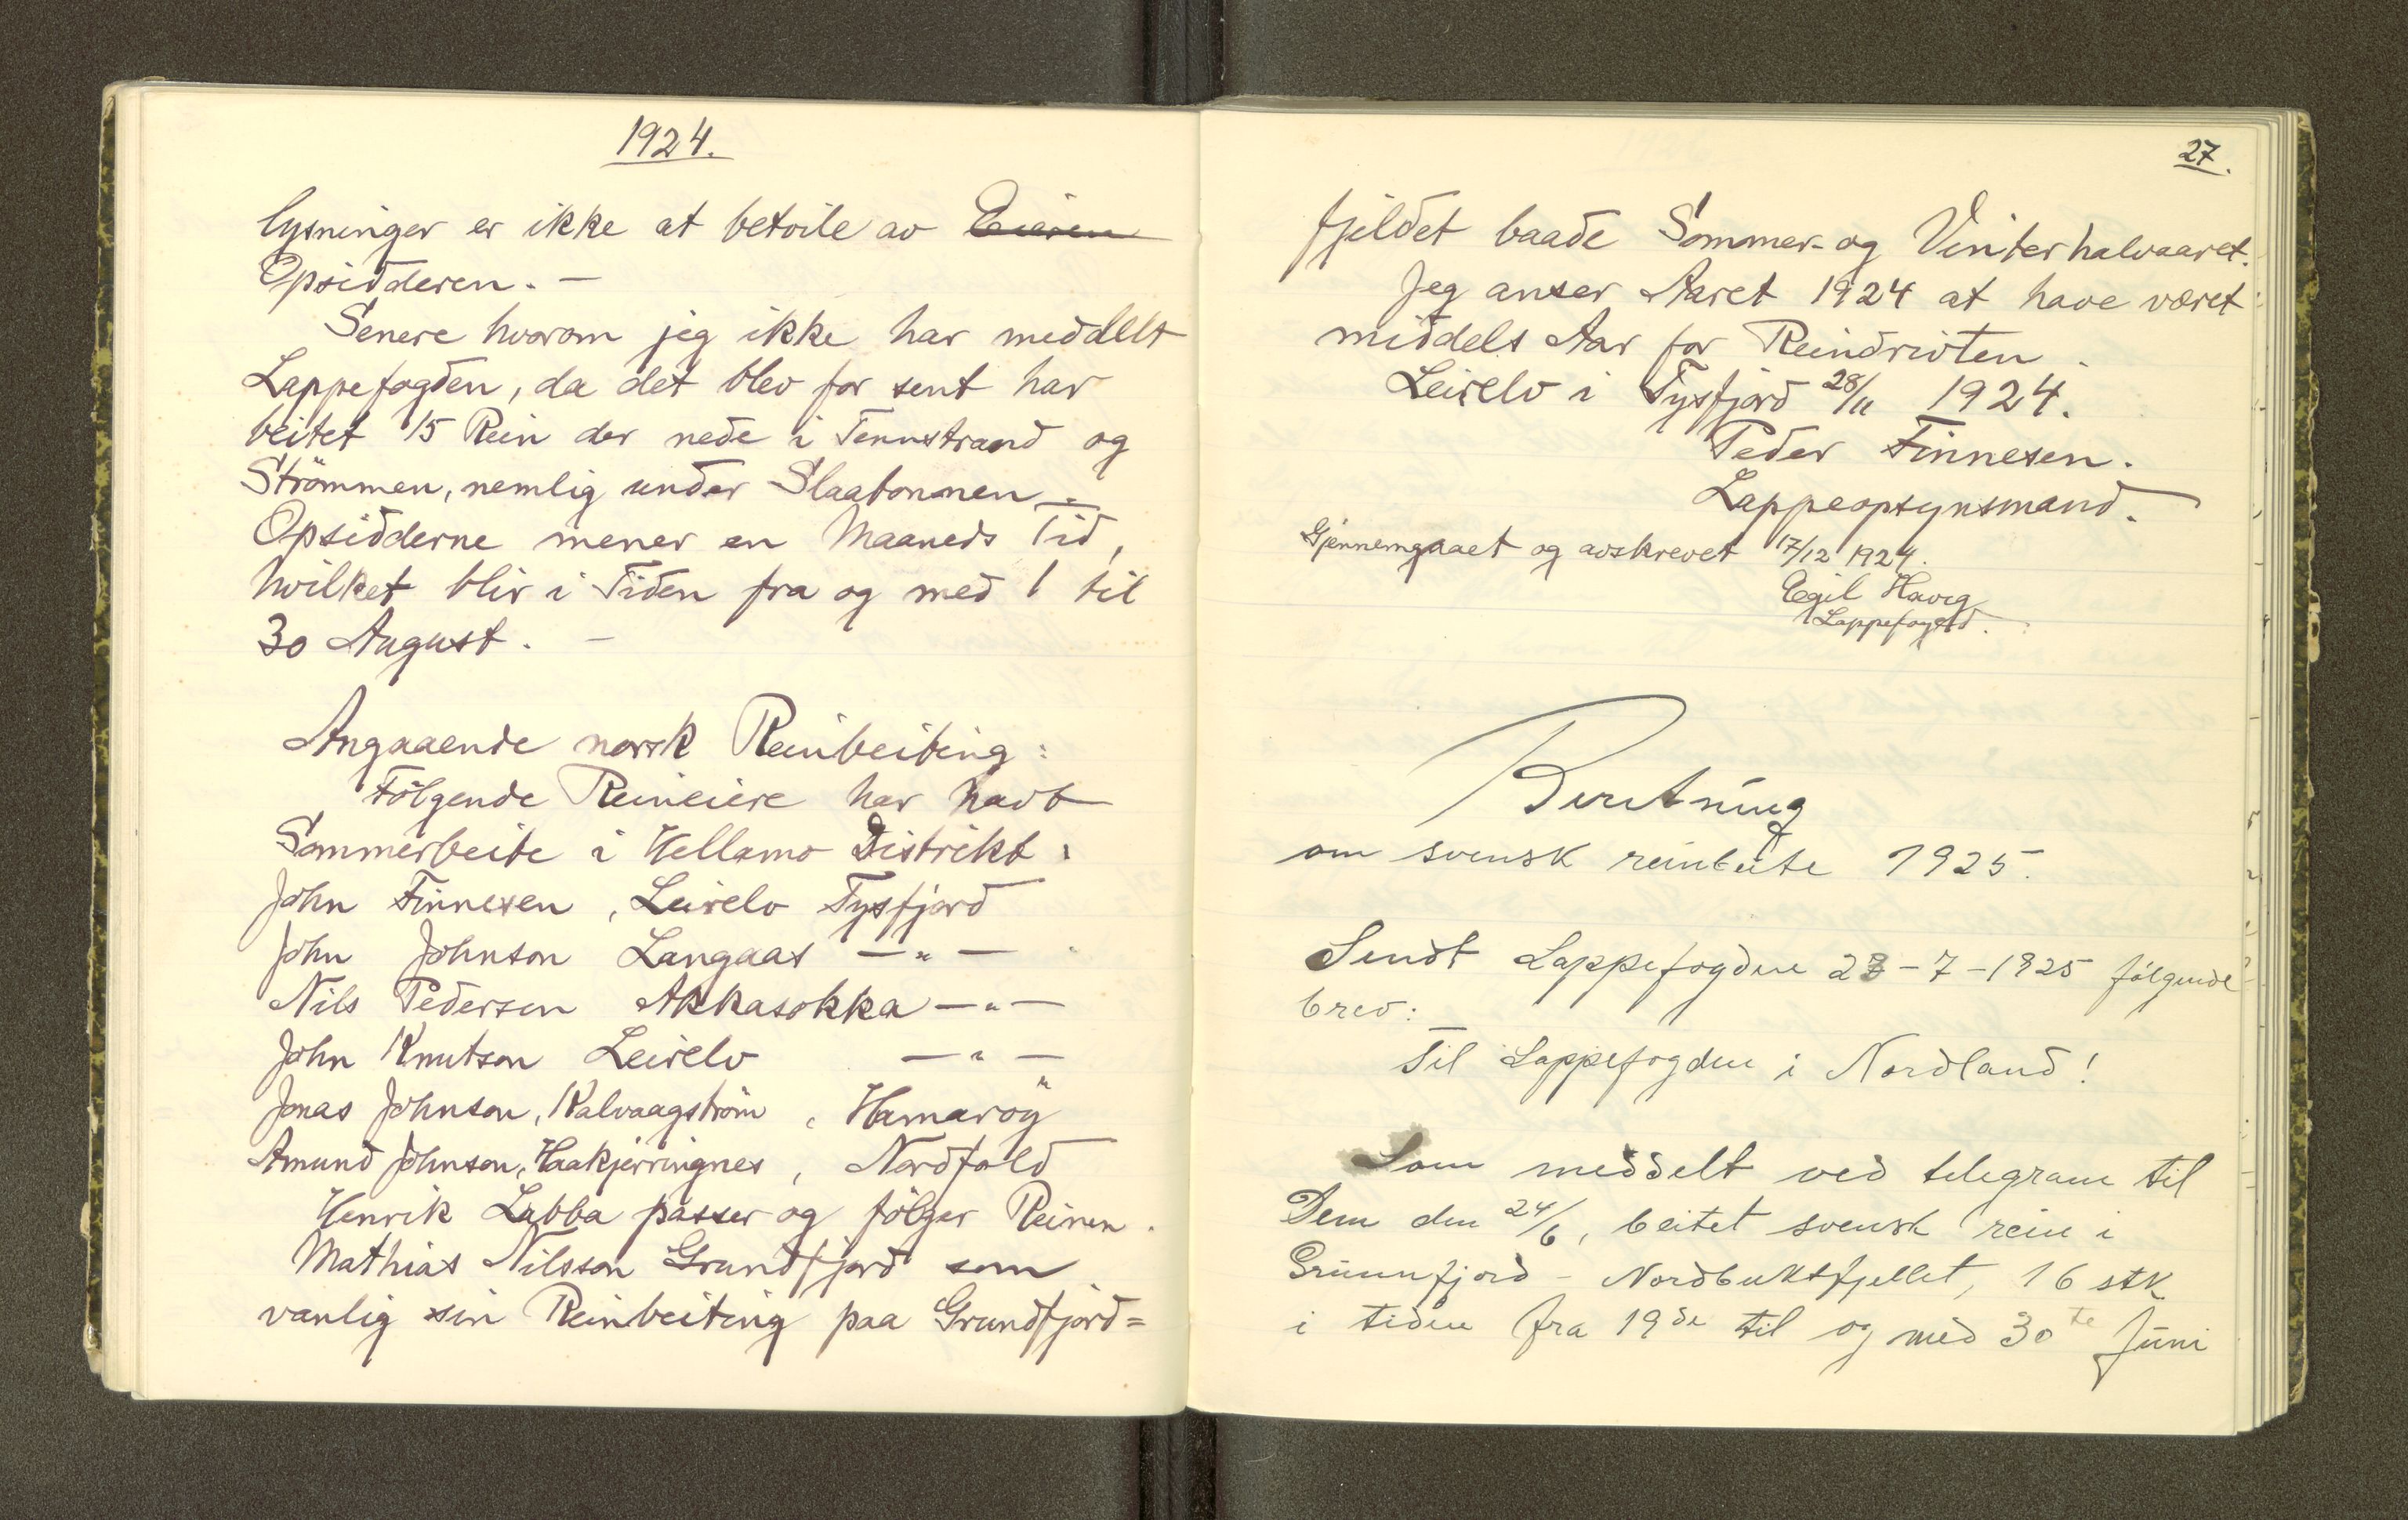 1924.
lysninger er ikke at betvile av ~~Eieren~~
Opsidderen. —
Senere hvorom jeg ikke har meddelt
Lappefogden, da det blev for sent har
beitet 15 Rein der nede i Tennstrand og
Strömmen, nemlig under Slaatonnen.
Opsidderne mener en Maaneds Tid,
hvilket blir i Tiden fra og med 1 til
30 August. —
Angaaende norsk Reinbeiting:
Følgende Reineiere har havt
Sommerbeite i Hellamo Distrikt:
John Finnesen, Leirelv Tysfjord
John Johnson Langaas — " —
Nils Pedersen Akkasokka — " —
John Knutson Leirelv — " —
Jonas Johnson, Kalvaagström, Hamaröy
Amund Johnson, Haakjerringnes, Nordfold
Henrik Labba passer og følger Reinen.
Mathias Nilsson Grundfjord som
vanlig sin Reinbeiting paa Grundfjord=
27.
fjeldet baade Sommer- og Vinterhalvaaret.
Jeg anser Aaret 1924 at have været
middels Aar for Reindriften.
Leirelv i Tysfjord 28/11 1924.
Peder Finnesen.
Lappeopsynsmand.
Gjennemgaaet og avskrevet 17/12 1924.
Egil Havig
Lappefoged.
Beretning
om svensk reinbeite 1925.
Sendt Lappefogden 28-7-1925 følgende
brev:
Til Lappefogden i Nordland!
Som meddelt ved telegram til
Dem den 24/6, beitet svensk rein i
Grunnfjord - Nordbuktfjellet, 16 stk
i tiden fra 19de til og med 30te Juni